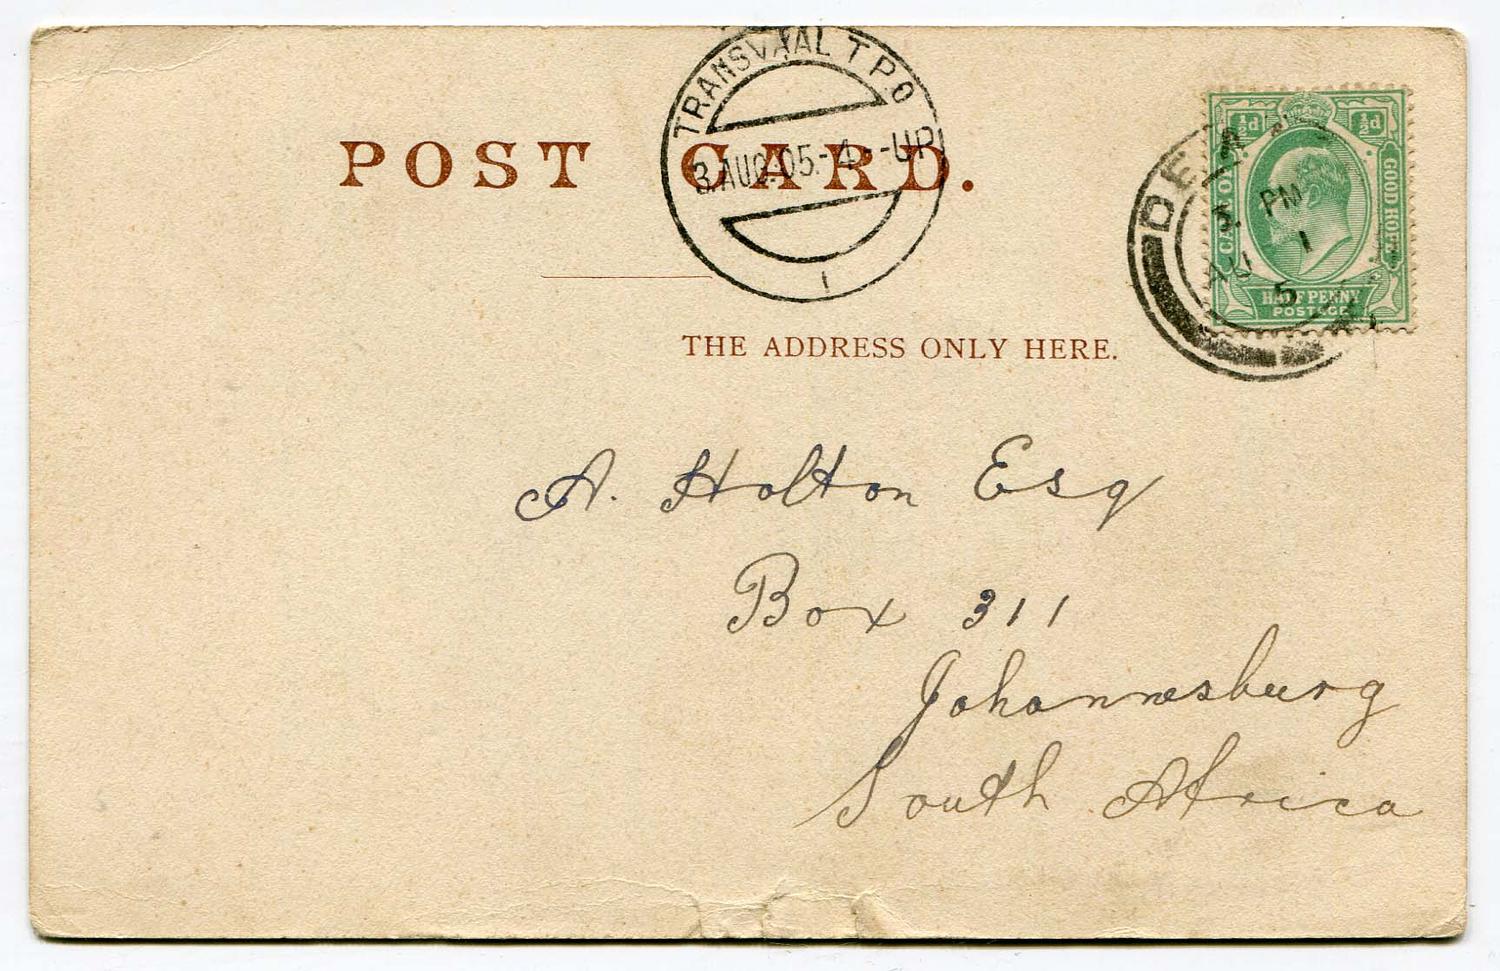 TRANSVAAL T.P.O
3.AUG.05.-4--UP
1
POST CARD.
½d ½d
CAPE OF GOOD HOPE
HALF PENNY
POSTAGE
PM
AU 1
5
THE ADDRESS ONLY HERE.
A. Holton Esq
Box 311
Johannesburg
South Africa